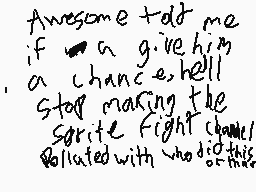 Awesome told me
if a give him
a chance, he'll
stop making the
sprite fight channel
Pollated with who did this
or that